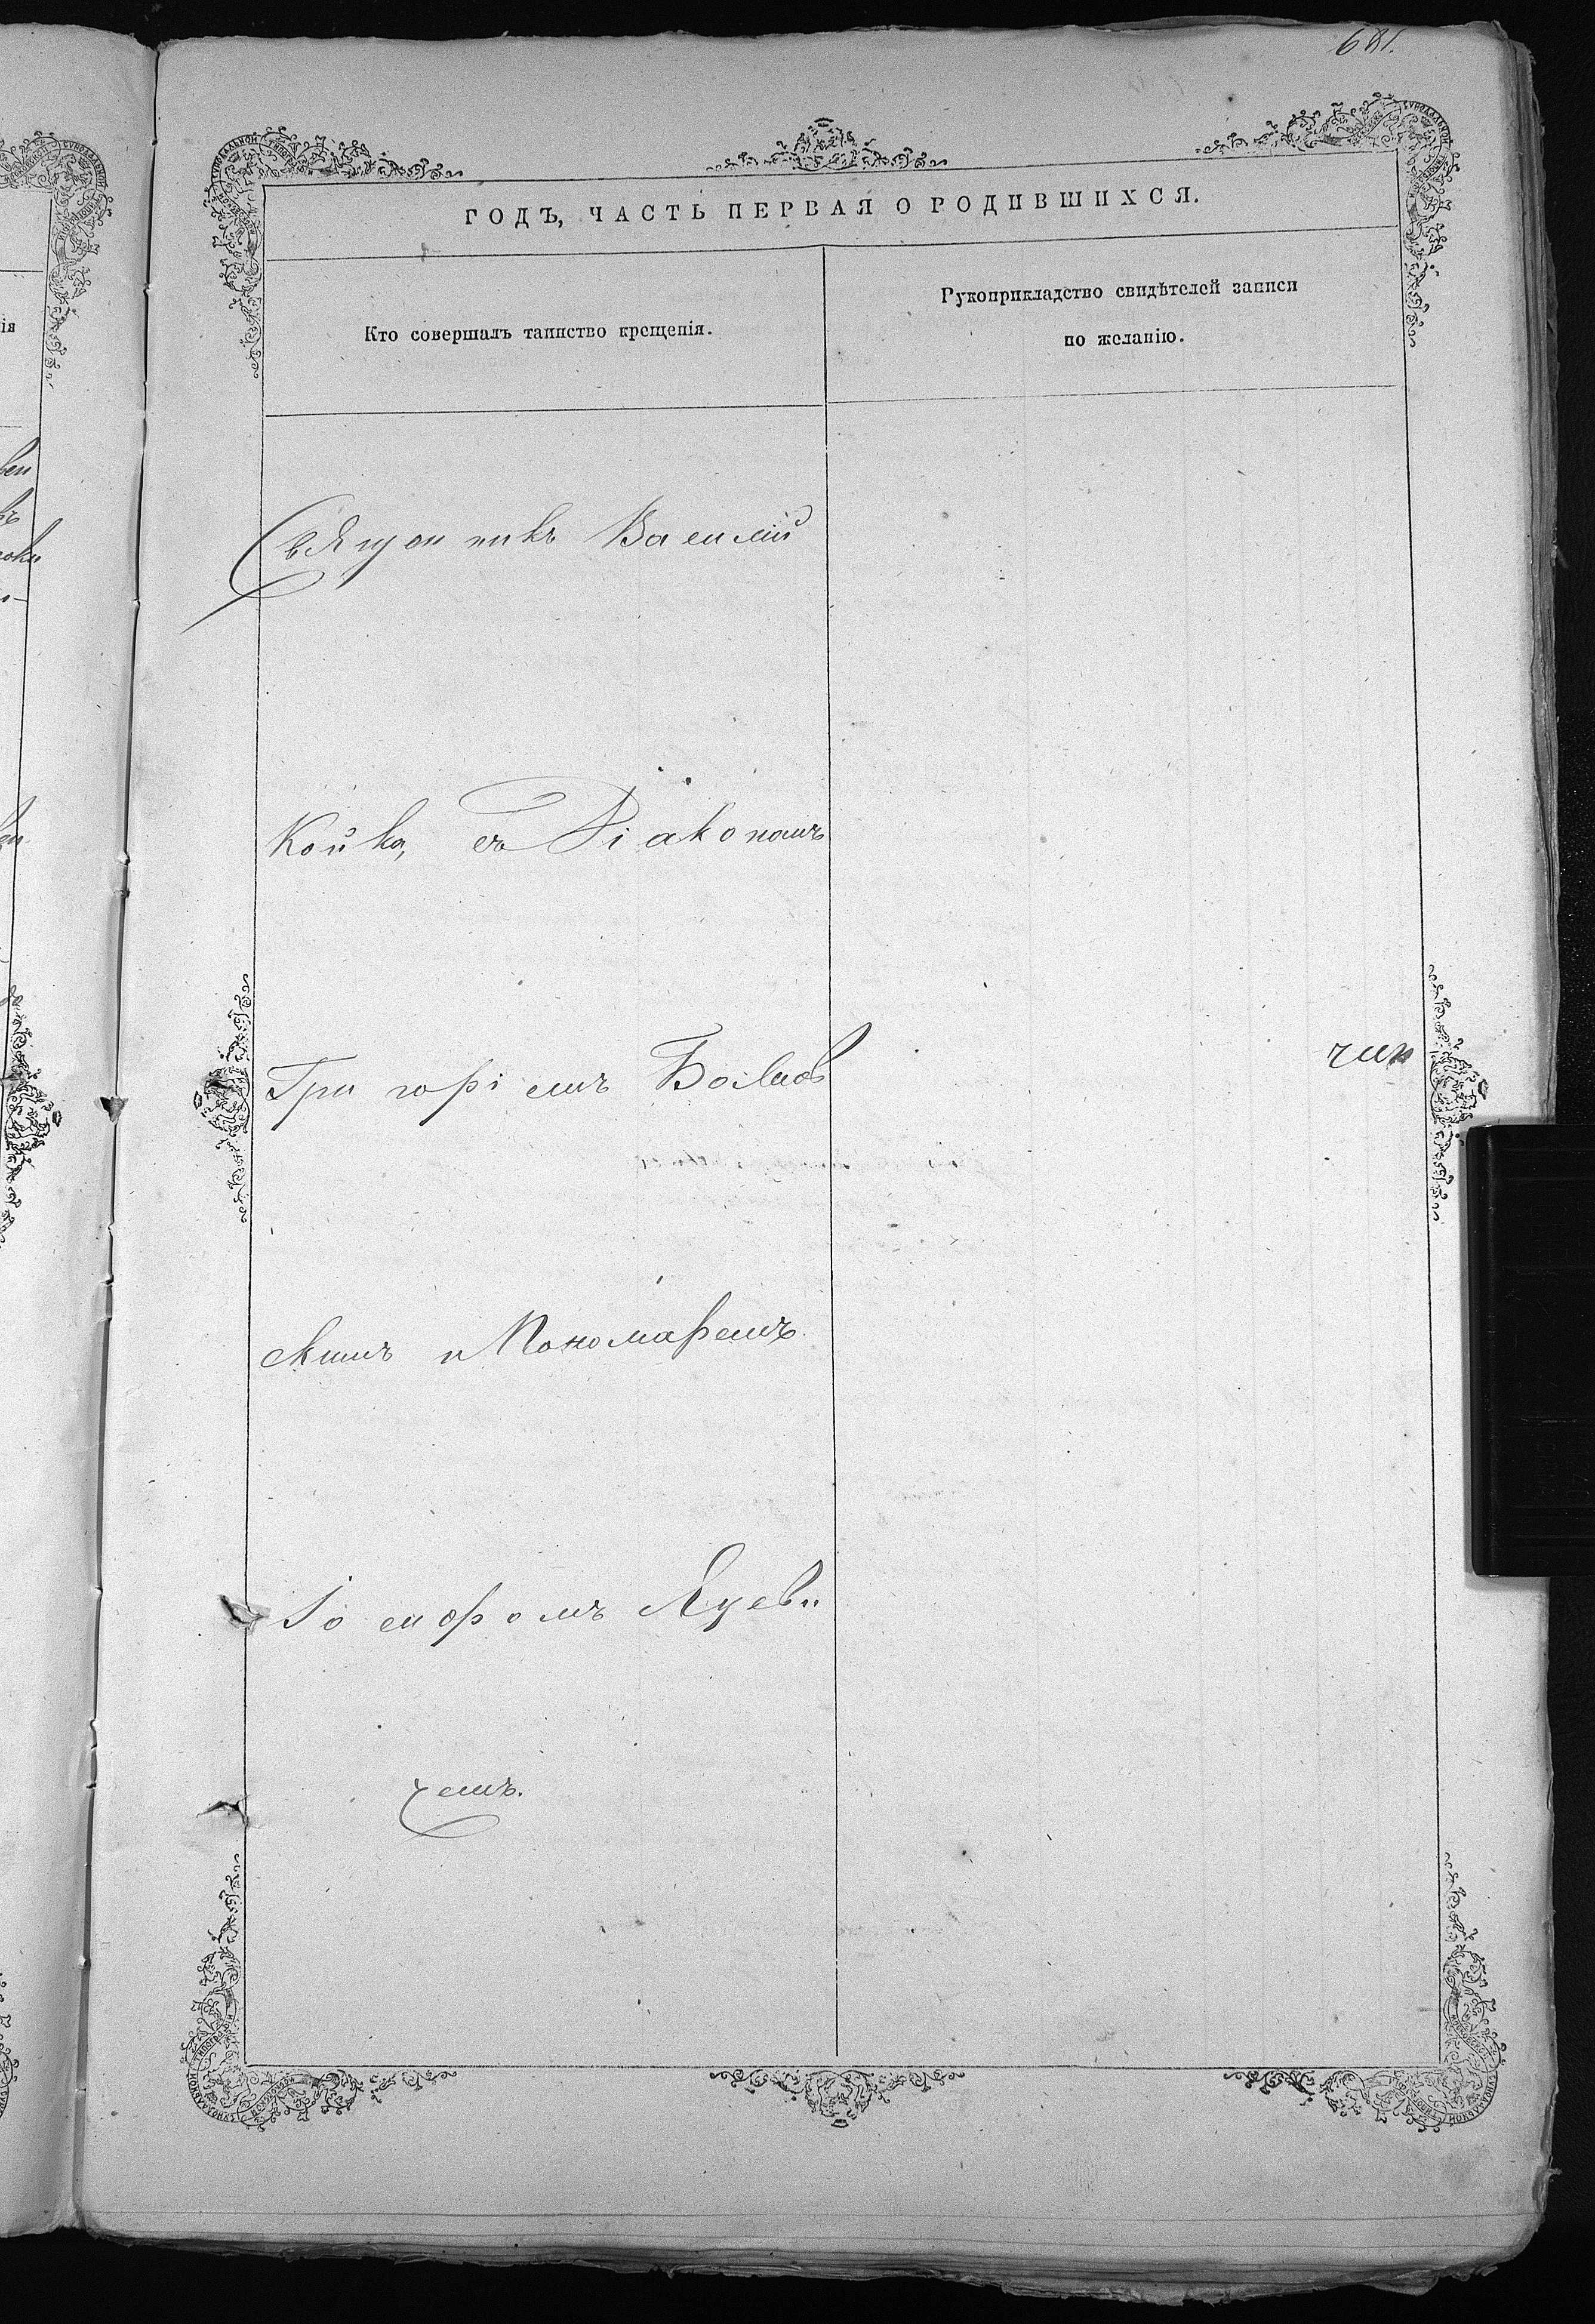 681.
ГОДЪ, ЧАСТЬ ПЕРВАЯ О РОДИВШИХСЯ.
Кто совершалъ таинство крещенія.
Рукоприкладство свидѣтелей записи
по желанію.
Священникъ Василій
Койко, съ Діакономъ
Григоріемъ Боѣлов
скимъ и Пономаремъ
Іосифомъ Яцеви
чемъ.